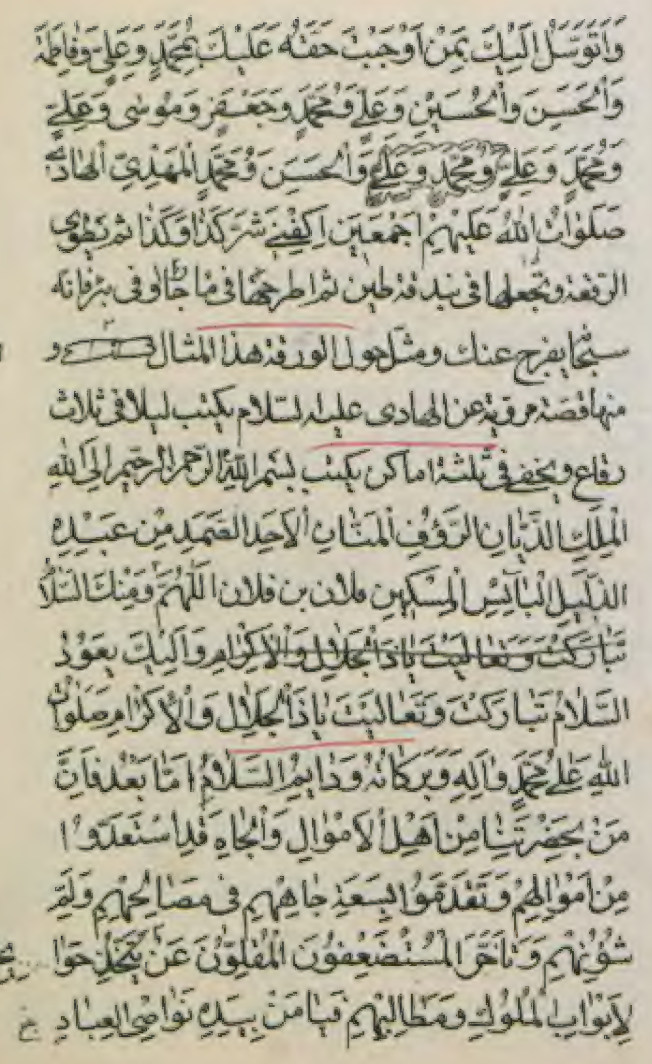 وَاَتَوَسَّلُ اِلَیْكَ بِمَنْ اَوْجَبْتَ حَقَّهُ عَلَیْكَ بِمُحَمَّدٍ وَعَلِیٍّ وَفَاطِمَةَ
وَالْحَسَنِ وَالْحُسَیْنِ وَعَلِیٍّ وَمُحَمَّدٍ وَجَعْفَرٍ وَمُوسٰی وَعَلِیٍّ
وَمُحَمَّدٍ وَعَلِیٍّ وَمُحَمَّدٍ وَعَلِیٍّ وَالْحَسَنِ وَمُحَمَّدٍ الْمَهْدِیِّ الْهَادِی
صَلَوَاتُ اللهِ عَلَیْهِمْ اَجْمَعِینَ اِكْفِنِی شَرَّ كَذَا وَكَذَا ثم تطوی
الرقعة وتجعلها فی بندقة طین ثم اطرحها فی ماء جار او فی بئر فانه
سبحانه یفرج عنك ومثل حول الورقة هذا المثال و
منها قصة مرویة عن الهادی علیه السلام یكتب لیلا فی ثلاث
رقاع ویخفی فی ثلثة اماكن یكتب بِسْمِ اللهِ الرَّحْمٰنِ الرَّحِیمِ اِلَی اللهِ
الْمَلِكِ الدَّیَّانِ الرَّؤُفِ الْمَنَّانِ الْاَحَدِ الصَّمَدِ مِنْ عَبْدِهِ
الذَّلِیلِ الْبَائِسِ الْمِسْكِینِ فلان بن فلان اَللّٰهُمَّ وَمِنْكَ السَّلَامُ
تَبَارَكْتَ وَتَعَالَیْتَ یَاذَا الْجَلَالِ وَالْاِكْرَامِ وَاِلَیْكَ یَعُودُ
السَّلَامُ تَبَارَكْتَ وَتَعَالَیْتَ یَاذَا الْجَلَالِ وَالْاِكْرَامِ صَلَوَاتُ
اللهِ عَلٰی مُحَمَّدٍ وَاٰلِهِ وَبَرَكَاتُهُ وَدَایِمُ السَّلَامِ اَمَّا بَعْدُ فَاِنَّ
مَنْ بِحَضْرَتِنَا مِنْ اَهْلِ الْاَمْوَالِ وَالْجَاهِ قَدِ اسْتَعَدُّوا
مِنْ اَمْوَالِهِمْ وَتَقَدَّمُوا بِسَعَةِ جَاهِهِمْ فِی مَصَالِحِهِمْ وَلَمِّ
شُؤُنِهِمْ وَتَاَخَّرَ الْمُسْتَضْعَفُونَ الْمُقِلُّونَ عَنْ تَنَجُّزِ حَوَا
لِاَبْوَابِ الْمُلُوكِ وَمَطَالِبِهِمْ فَیَا مَنْ بِیَدِهِ نَوَاصِی الْعِبَادِ